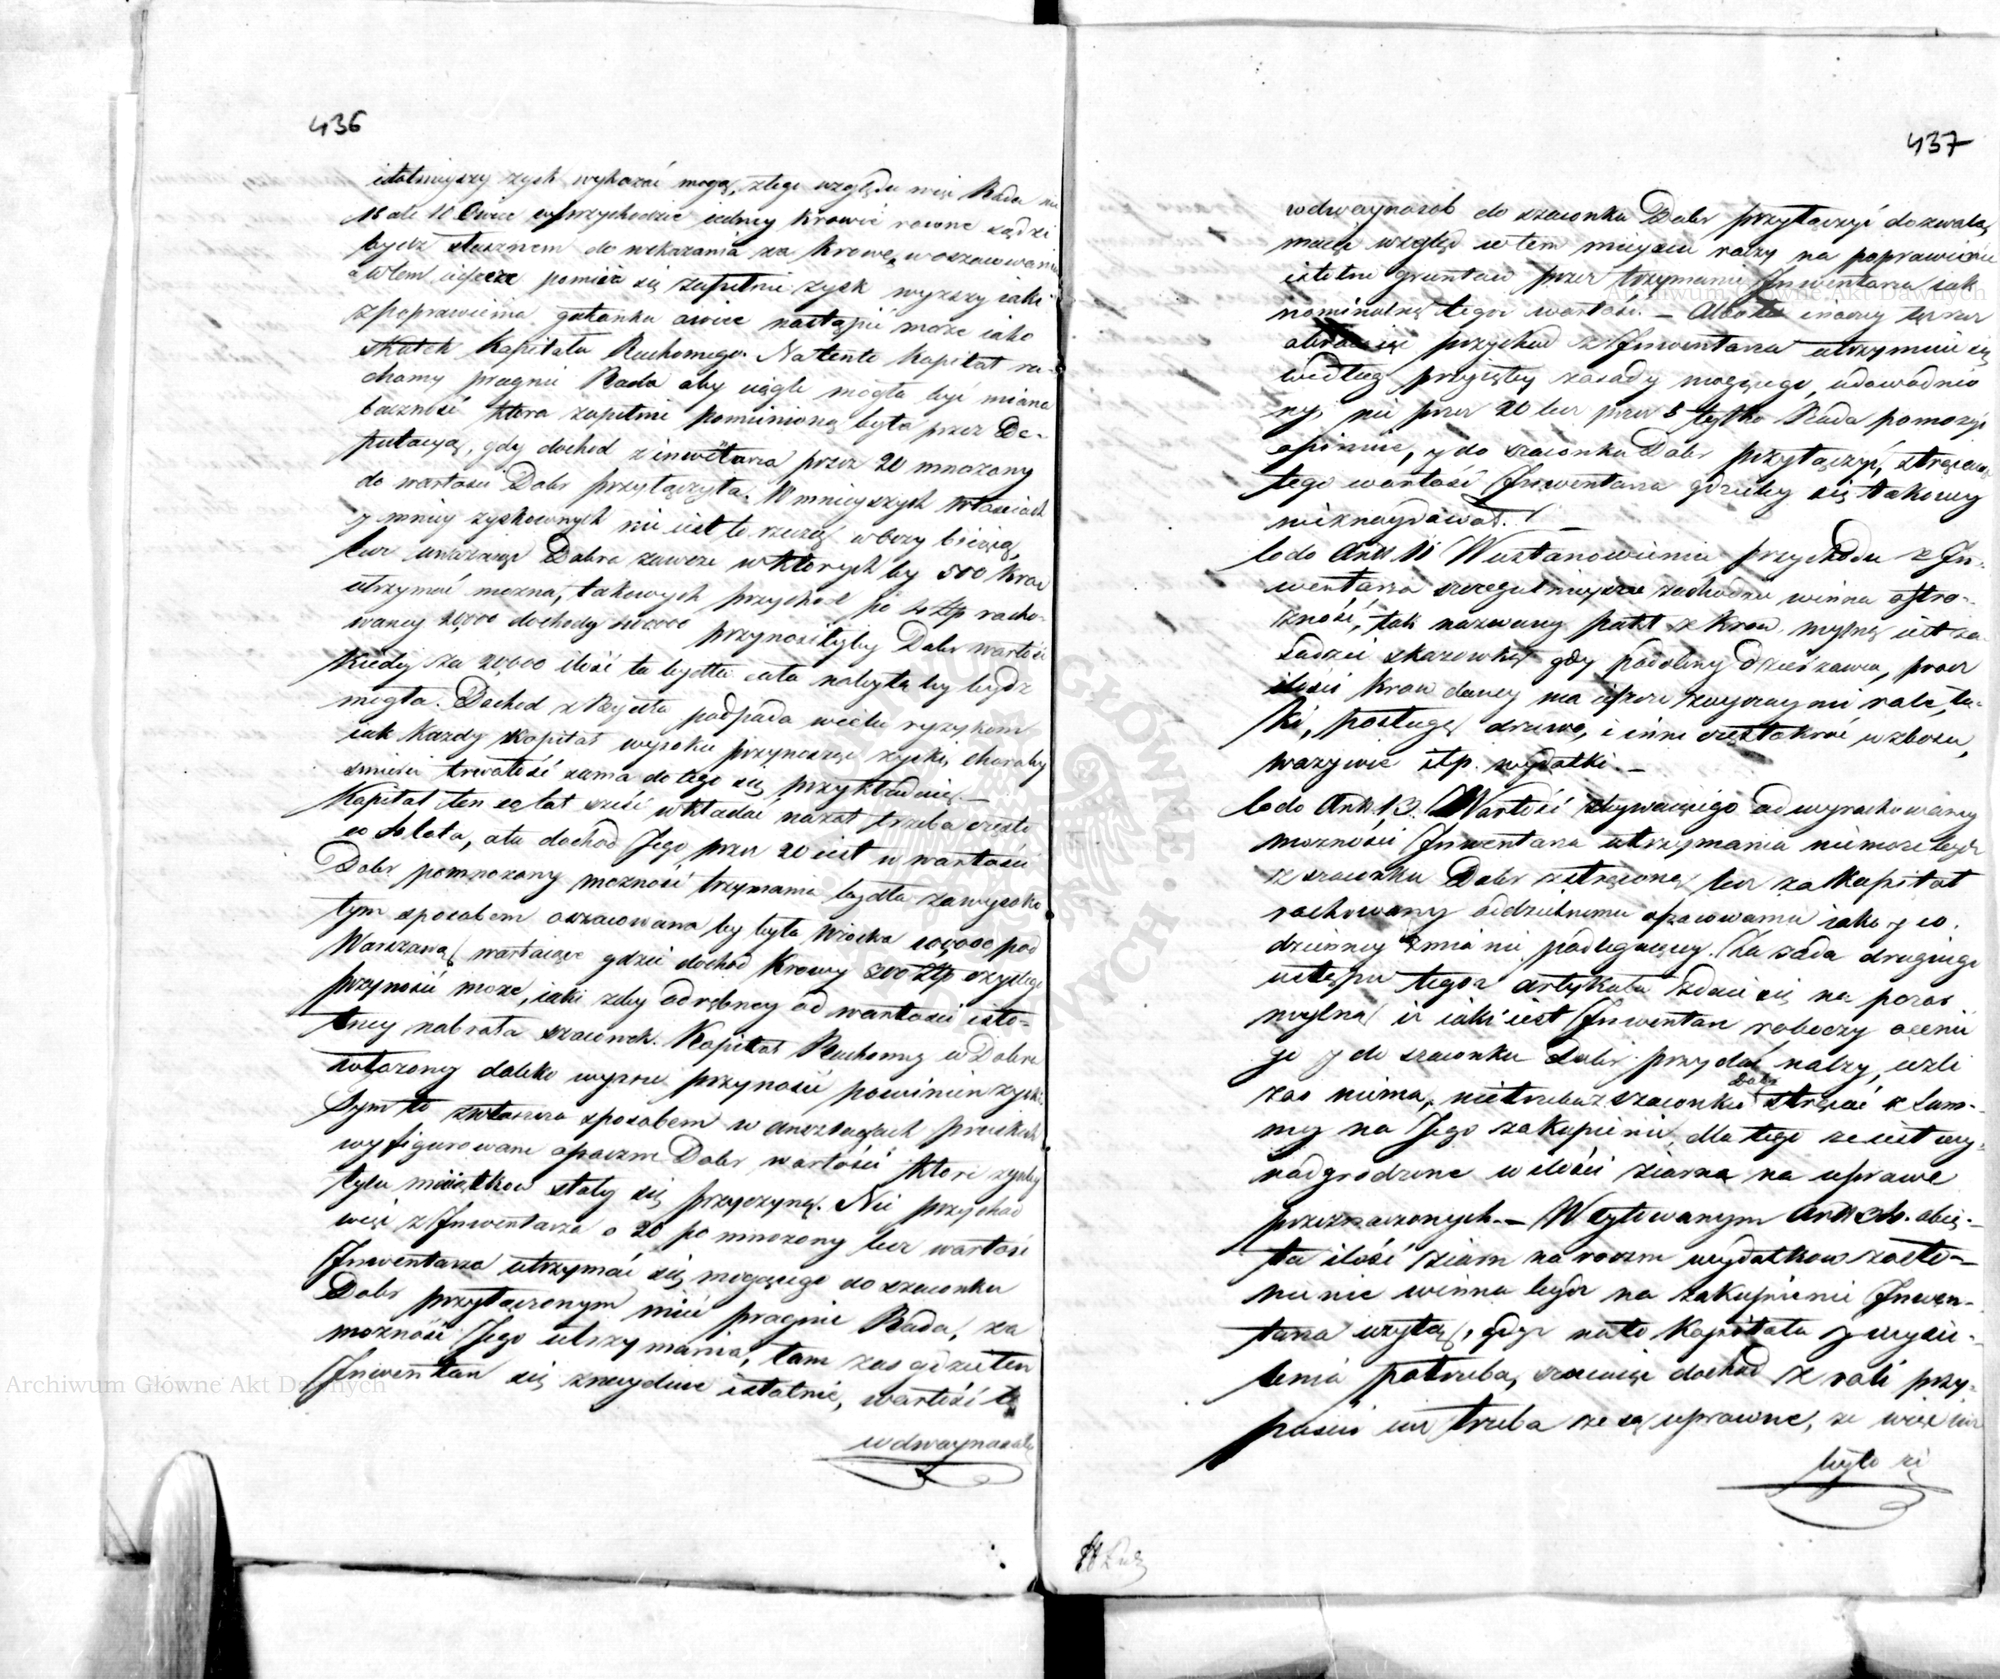 436
istotnieyszy zysk wykazać mogą, z tego względu więc Rada na
15 ale 10 Owiec w przychodzie iedney krowie rowne sądzi
bydź słusznem do wskazania za krowę w oszacowaniu
a w tem ieszcze pomieści się zupełnie zysk wyższy iaki
z poprawienia gatunku owiec nastąpić może iako
skutek Kapitału Ruchomego. Na tento Kapitał ru-
chomy pragnie Rada aby ciągle mogła być miana
baczność ktora zupełnie pominioną była przez De-
putacyą, gdy dochod z inwentarza przez 20 mnożony
do wartości Dobr przyłączyła. W mnieyszych włościach
y mniey zyskownych nie iest to rzeczą w oczy biiącą,
lecz uważaiąc Dobra zawsze w ktorych by 500 krow
utrzymać można, takowych przychod po 40 złp racho-
waney 20,000 dochody 400000 przynosiłyby Dobr wartości
kiedy za 20,000 ilość ta bydła cała nabytą by bydź
mogła. Dochod z Bydła podpada wielu ryzykom
iak każdy Kapitał wysokie przynoszący zyski, choroby
śmierć trwałość sama do tego się przykładaią.—
Kapitał ten co lat sześć wkładać nazat trzeba często
co lata, ale dochod Jego przez 20 iest w wartości
Dobr pomnożony możność trzymania bydła za wysoko
tym sposobem oszacowana by była Wioska 100,000 pod
Warszawą wartaiąca gdzie dochod Krowy 200 Złp czystego
przynosić może, iaki żeby odrębney od wartości isto-
tney nabrała szacunek. Kapitał Ruchomy w Dobra
włożony daleko wyższe przynosić powinien zyski.
Tym to zwłaszcza sposobem w anszlagach pruskich
wyfigurowane opaczne Dobr wartości ktore zguby
tylu maiątkow stały się przyczyną. Nie przychod
więc z Inwentarza o 20 pomnożony lecz wartość
Inwentarza utrzymać się mogącego do szacunku
Dobr przyłączonym mieć pragnie Rada, za
możność Jego utrzymania, tam zas gdzie ten
Inwentarz się znayduie istotnie, wartość te
wdwaynasob
437
wdwaynasob do szacunku Dobr przyłączyć dozwala,
maiąc wzgląd w tem mieyscu raczy na poprawienie
istotne gruntow przez trzymanie Inwentarza iak
nominalną tegoż wartość.— Albo
obracaiąc przychod z Inwentarza utrzymać się
według przyiętey zasady mogącego, udowodnio
ny, nie przez 20 lecz przez 5 tylko Rada pomnożyć
opiniuie, y do szacunku Dobr przyłączyć, strącaiąc
tego wartość Inwentarza gdzieby się takowy
nieznaydował.
10do Artt 11 W ustanowieniu przychodu z In-
wentarza szczegulnieysza zachodzić winna ostro-
żność, tak nazwany pakt z krow mylną iest za
sadzie skazowką gdy podobny Dzierżawca, procz
ilości krow daney ma ieszcze zwyczaynie role, łą-
ki, posługę drzewo, i inne częstokroć w zbożu,
warzywie itp. wydatki.—
10do Artt 13. Wartość zbywaiącego od wyrachowaney
możności Inwentarza utrzymania niemoże bydź
z szacunku Dobr strąconą lecz za Kapitał
rachowany oddzielnemu szacowaniu iako y co.
dzienney zmianie podlegaiący. Zasada drugiego
ustępu tegoż artykułu zdaie się na pozor
mylną iż iaki iest Inwentarz roboczy ocenić
go y do szacunku Dobr przydać należy, ieżli
zas niema, nietrzeba z szacunku Dobr strącać z Sum-
my na Jego zakupienie, dla tego że iest wy-
nadgrodzone w ilości ziarna na uprawę
przeznaczonych.— W cytowanym Artt 24. obię-
ta ilość ziarn na rozm wydatkow zasto-
nienie winna bydź na zakupienie Inwen-
tarza użytą, gdyż na to Kapitału y wysie-
lenia potrzeba, szacuiąc dochod z roli przy-
puścić iuż trzeba że są uprawne, że więc iuż
było się